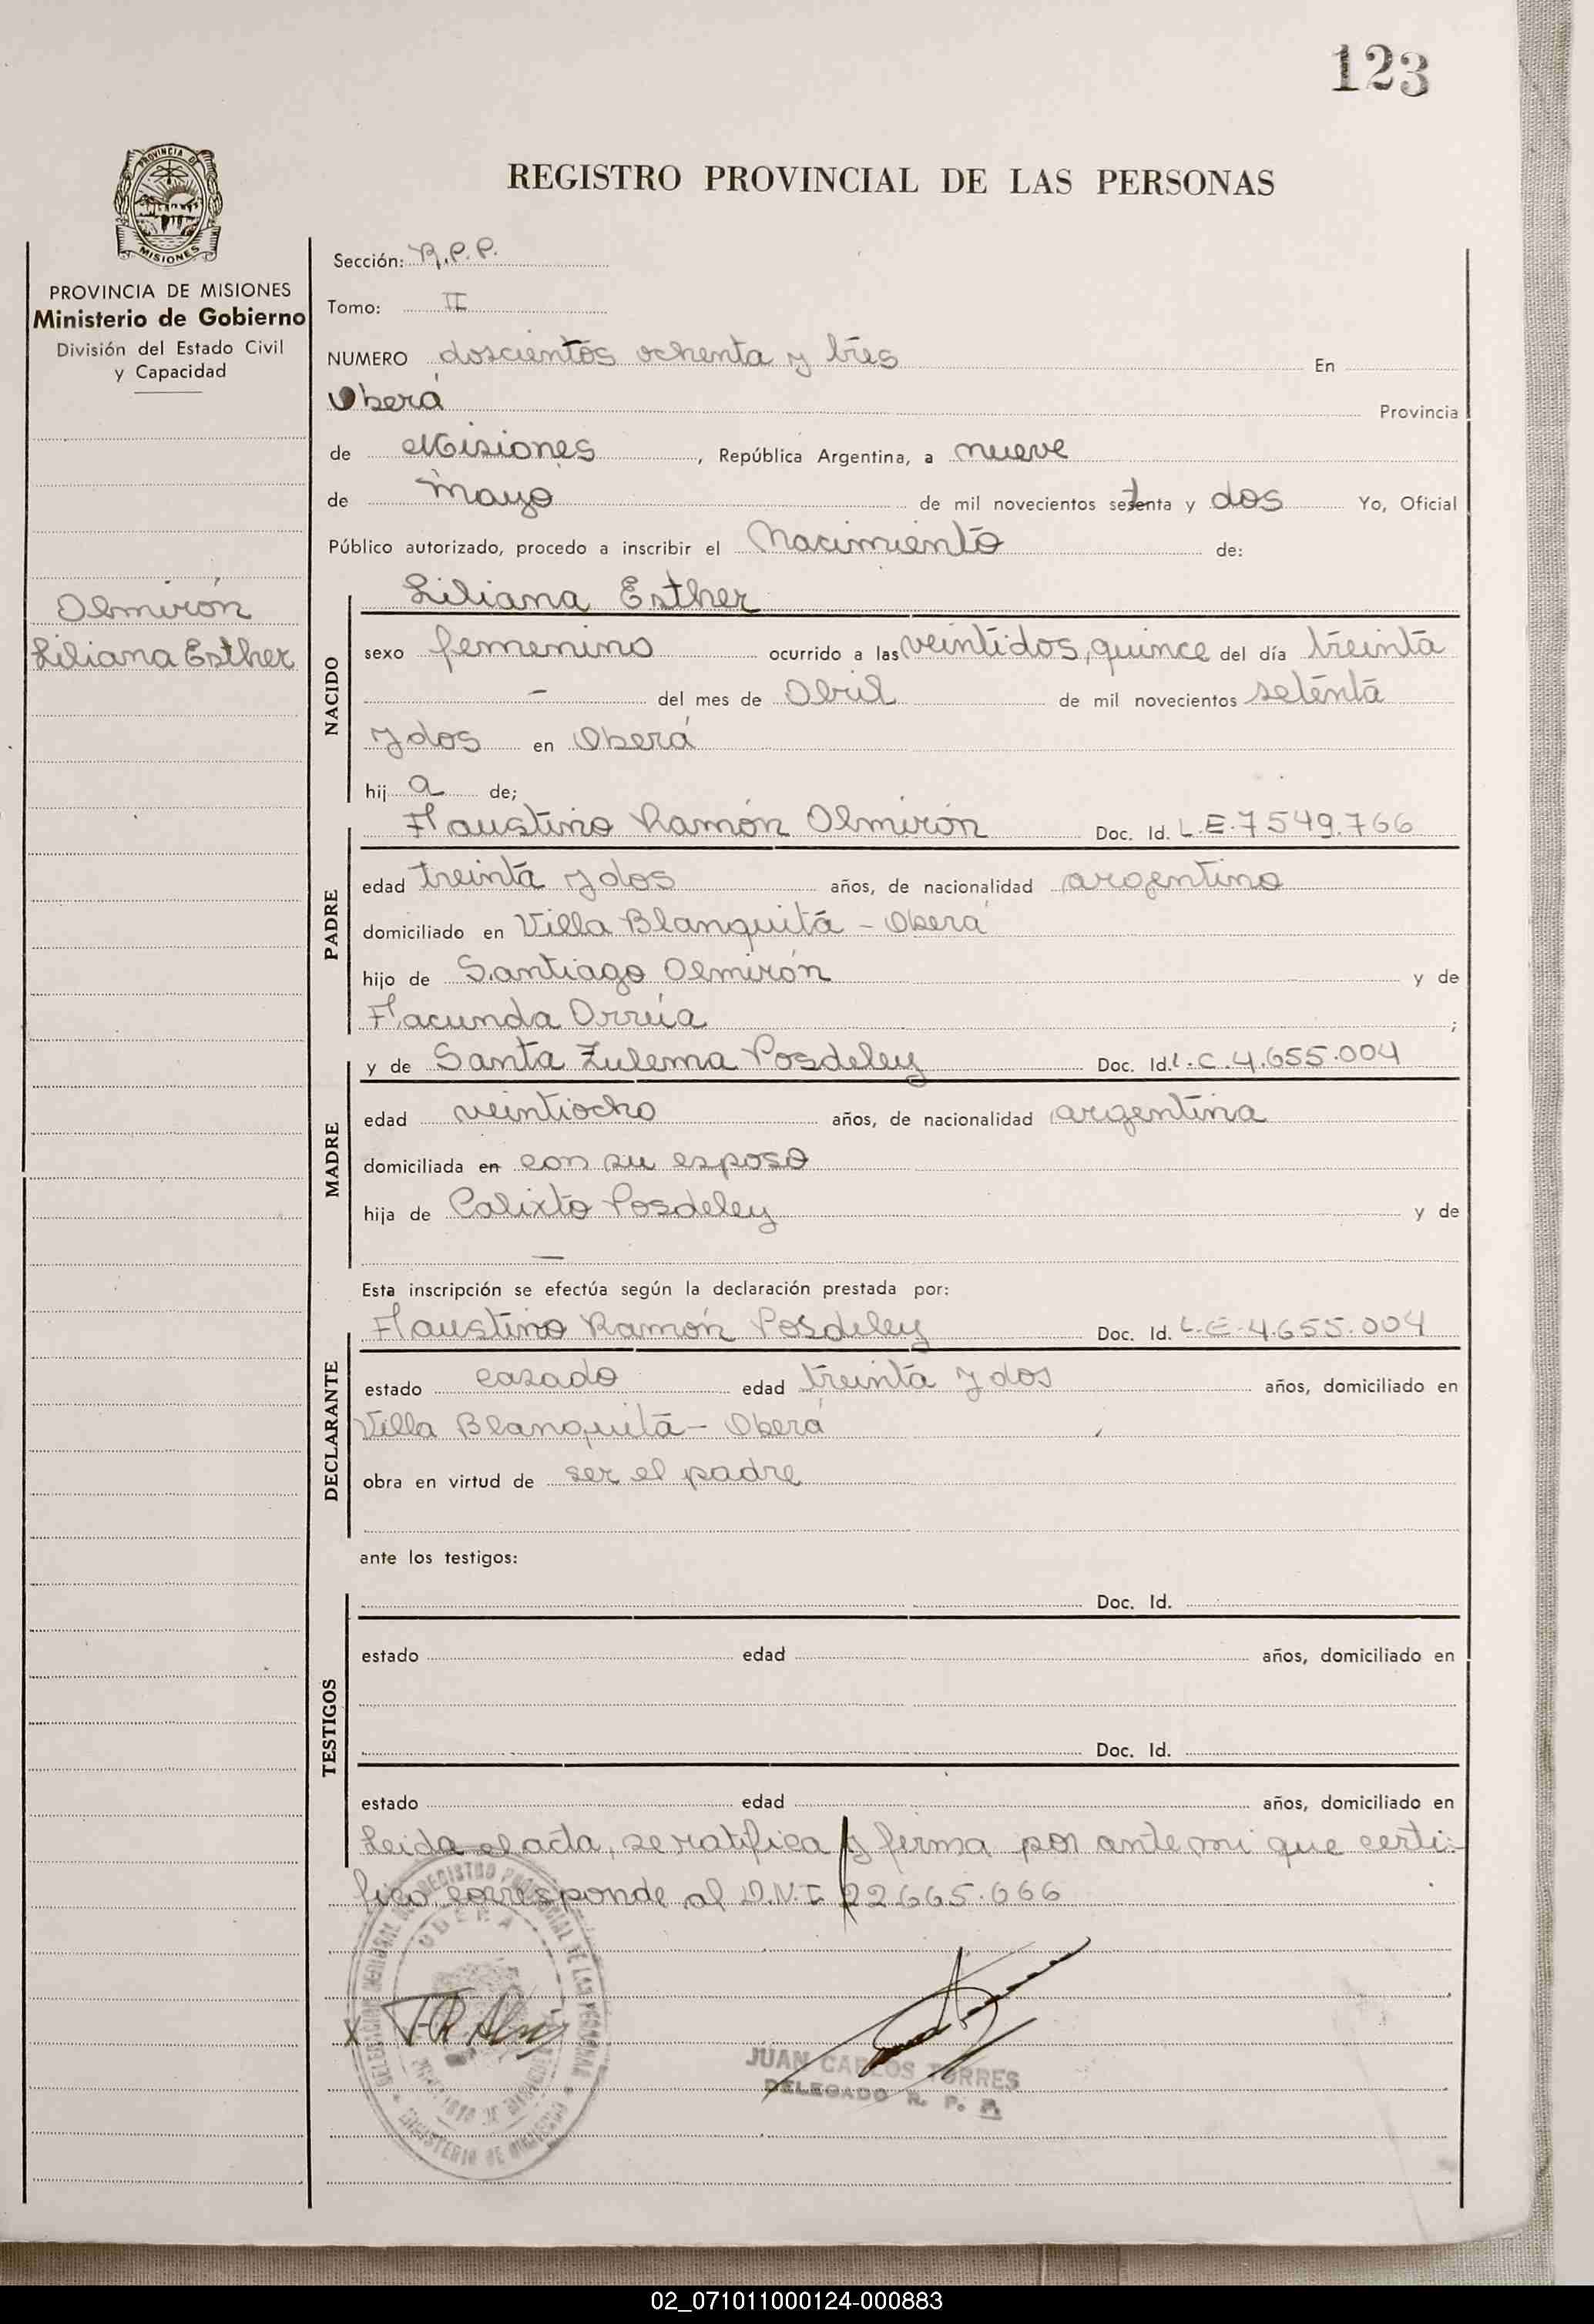 123
REGISTRO PROVINCIAL DE LAS PERSONAS
PROVINCIA DE
MISIONES
PROVINCIA DE MISIONES
Ministerio de Gobierno
División del Estado Civil
y Capacidad
Olmirón
Liliana Esther
Sección: R.P.P.
Tomo: II
NUMERO doscientos ochenta y tres En
Oberá Provincia
de Misiones, República Argentina, a nueve
de mayo de mil novecientos setenta y dos Yo, Oficial
Público autorizado, procedo a inscribir el Nacimiento de:
NACIDO
Liliana Esther
sexo femenino ocurrido a las veintidos, quince del día treinta
— del mes de Abril de mil novecientos setenta
y dos en Oberá
hij a de;
PADRE
Faustino Ramón Olmirón Doc. Id. L.E. 7549.766
edad treinta y dos años, de nacionalidad argentino
domiciliado en Villa Blanquita - Oberá
hijo de Santiago Olmirón y de
Facunda Orrúa ;
MADRE
y de Santa Zulema Posdeley Doc. Id. L.C. 4.655.004
edad veintiocho años, de nacionalidad argentina
domiciliada en con su esposo
hija de Calixto Posdeley y de
—
Esta inscripción se efectúa según la declaración prestada por:
DECLARANTE
Faustino Ramón Posdeley Doc. Id. L.E. 4.655.004
estado casado edad treinta y dos años, domiciliado en
Villa Blanquita - Oberá
obra en virtud de ser el padre
ante los testigos:
TESTIGOS
Doc. Id.
estado edad años, domiciliado en
Doc. Id.
estado edad años, domiciliado en
Leida el acta, se ratifica y firma por ante mi que certi-
fico corresponde al D.N.I 22665.666
OBERA
JUAN CARLOS TORRES
DELEGADO R. P. P.
02_071011000124-000883